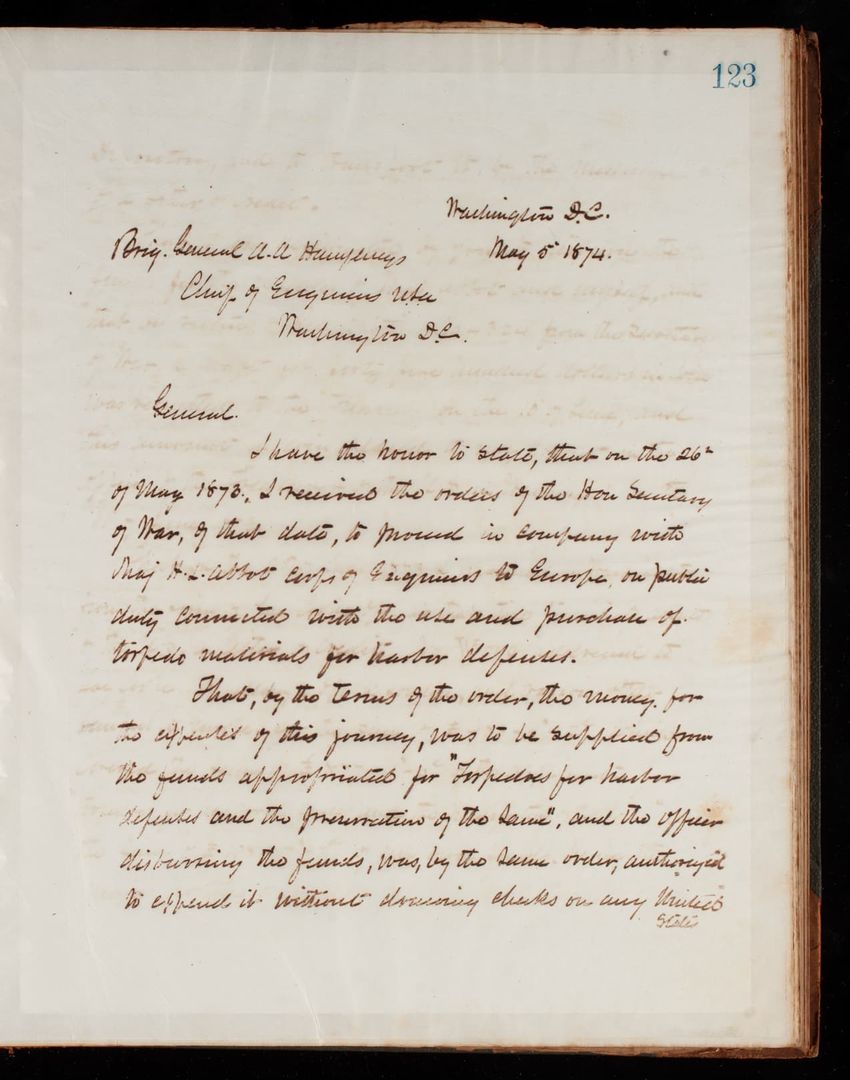 123
Washington D.C.
Brig. General A. A Humphreys May 5th 1874.
Chief of Engineers USA
Washington D.C.
General.
I have the honor to state, that on the 26th
of May 1873, I received the orders of the Hon Secretary
of War, of that date, to proceed in company with
Maj H. L. Abbot Corps of Engineers to Europe, on public
duty connected with the use and purchase of
torpedo materials for harbor defenses.
That, by the terms of the order, the money for
the expenses of this journey, was to be supplied from
the funds appropriated for "Torpedoes for harbor
defenses and the preservation of the same", and the officer
disbursing the funds, was, by the same order, authorized
to expend it without drawing checks on any United
States